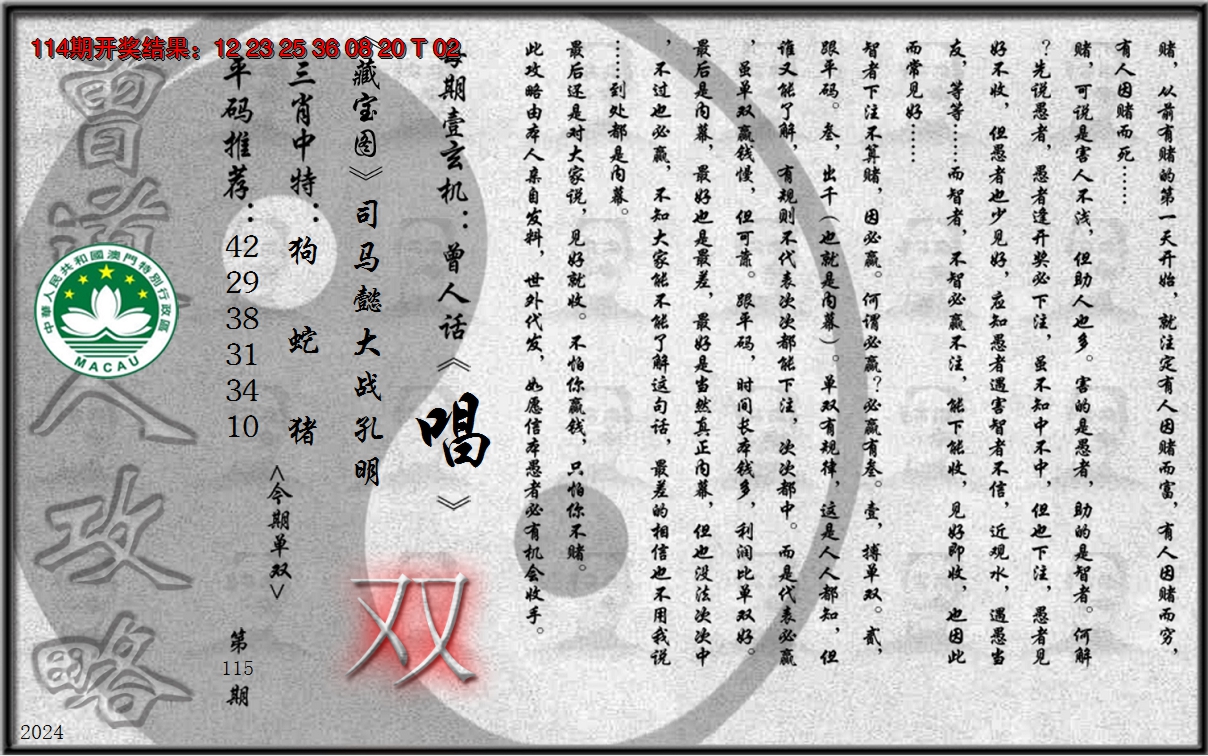 114期开奖结果：12 23 25 36 08 20 T 02
赌，从前有赌的第一天开始，就注定有人因赌而富，有人因赌而穷，
有人因赌而死……
赌，可说是害人不浅，但助人也多。害的是愚者，助的是智者。何解
？先说愚者，愚者逢开奖必下注，虽不知中不中，但也下注，愚者见
好不收，但愚者也少见好，应知愚者遇害智者不信，近观水，遇愚当
友，等等……而智者，不智必赢不注，能下能收，见好即收，也因此
而常见好……
智者下注不算赌，因必赢。何谓必赢？必赢有叁。壹，搏单双。贰，
跟平码。叁，出千（也就是内幕）。单双有规律，这是人人都知，但
谁又能了解，有规则不代表次次都能下注，次次都中。而是代表必赢
，虽单双赢钱慢，但可靠。跟平码，时间长本钱多，利润比单双好。
最后是内幕，最好也是最差，最好是当然真正内幕，但也没法次次中
，不过也必赢，不知大家能不能了解这句话，最差的相信也不用我说
……到处都是内幕。
最后还是对大家说，见好就收。不怕你赢钱，只怕你不赌。
此攻略由本人亲自发料，世外代发，如愿信本愚者必有机会收手。
每期壹玄机：曾人话《唱》
《藏宝图》司马懿大战孔明
双
三肖中特：狗 蛇 猪
<今期单双>
平码推荐：42 29 38 31 34 10
第115期
曾道人攻略
中華人民共和國澳門特別行政區
MACAU
2024